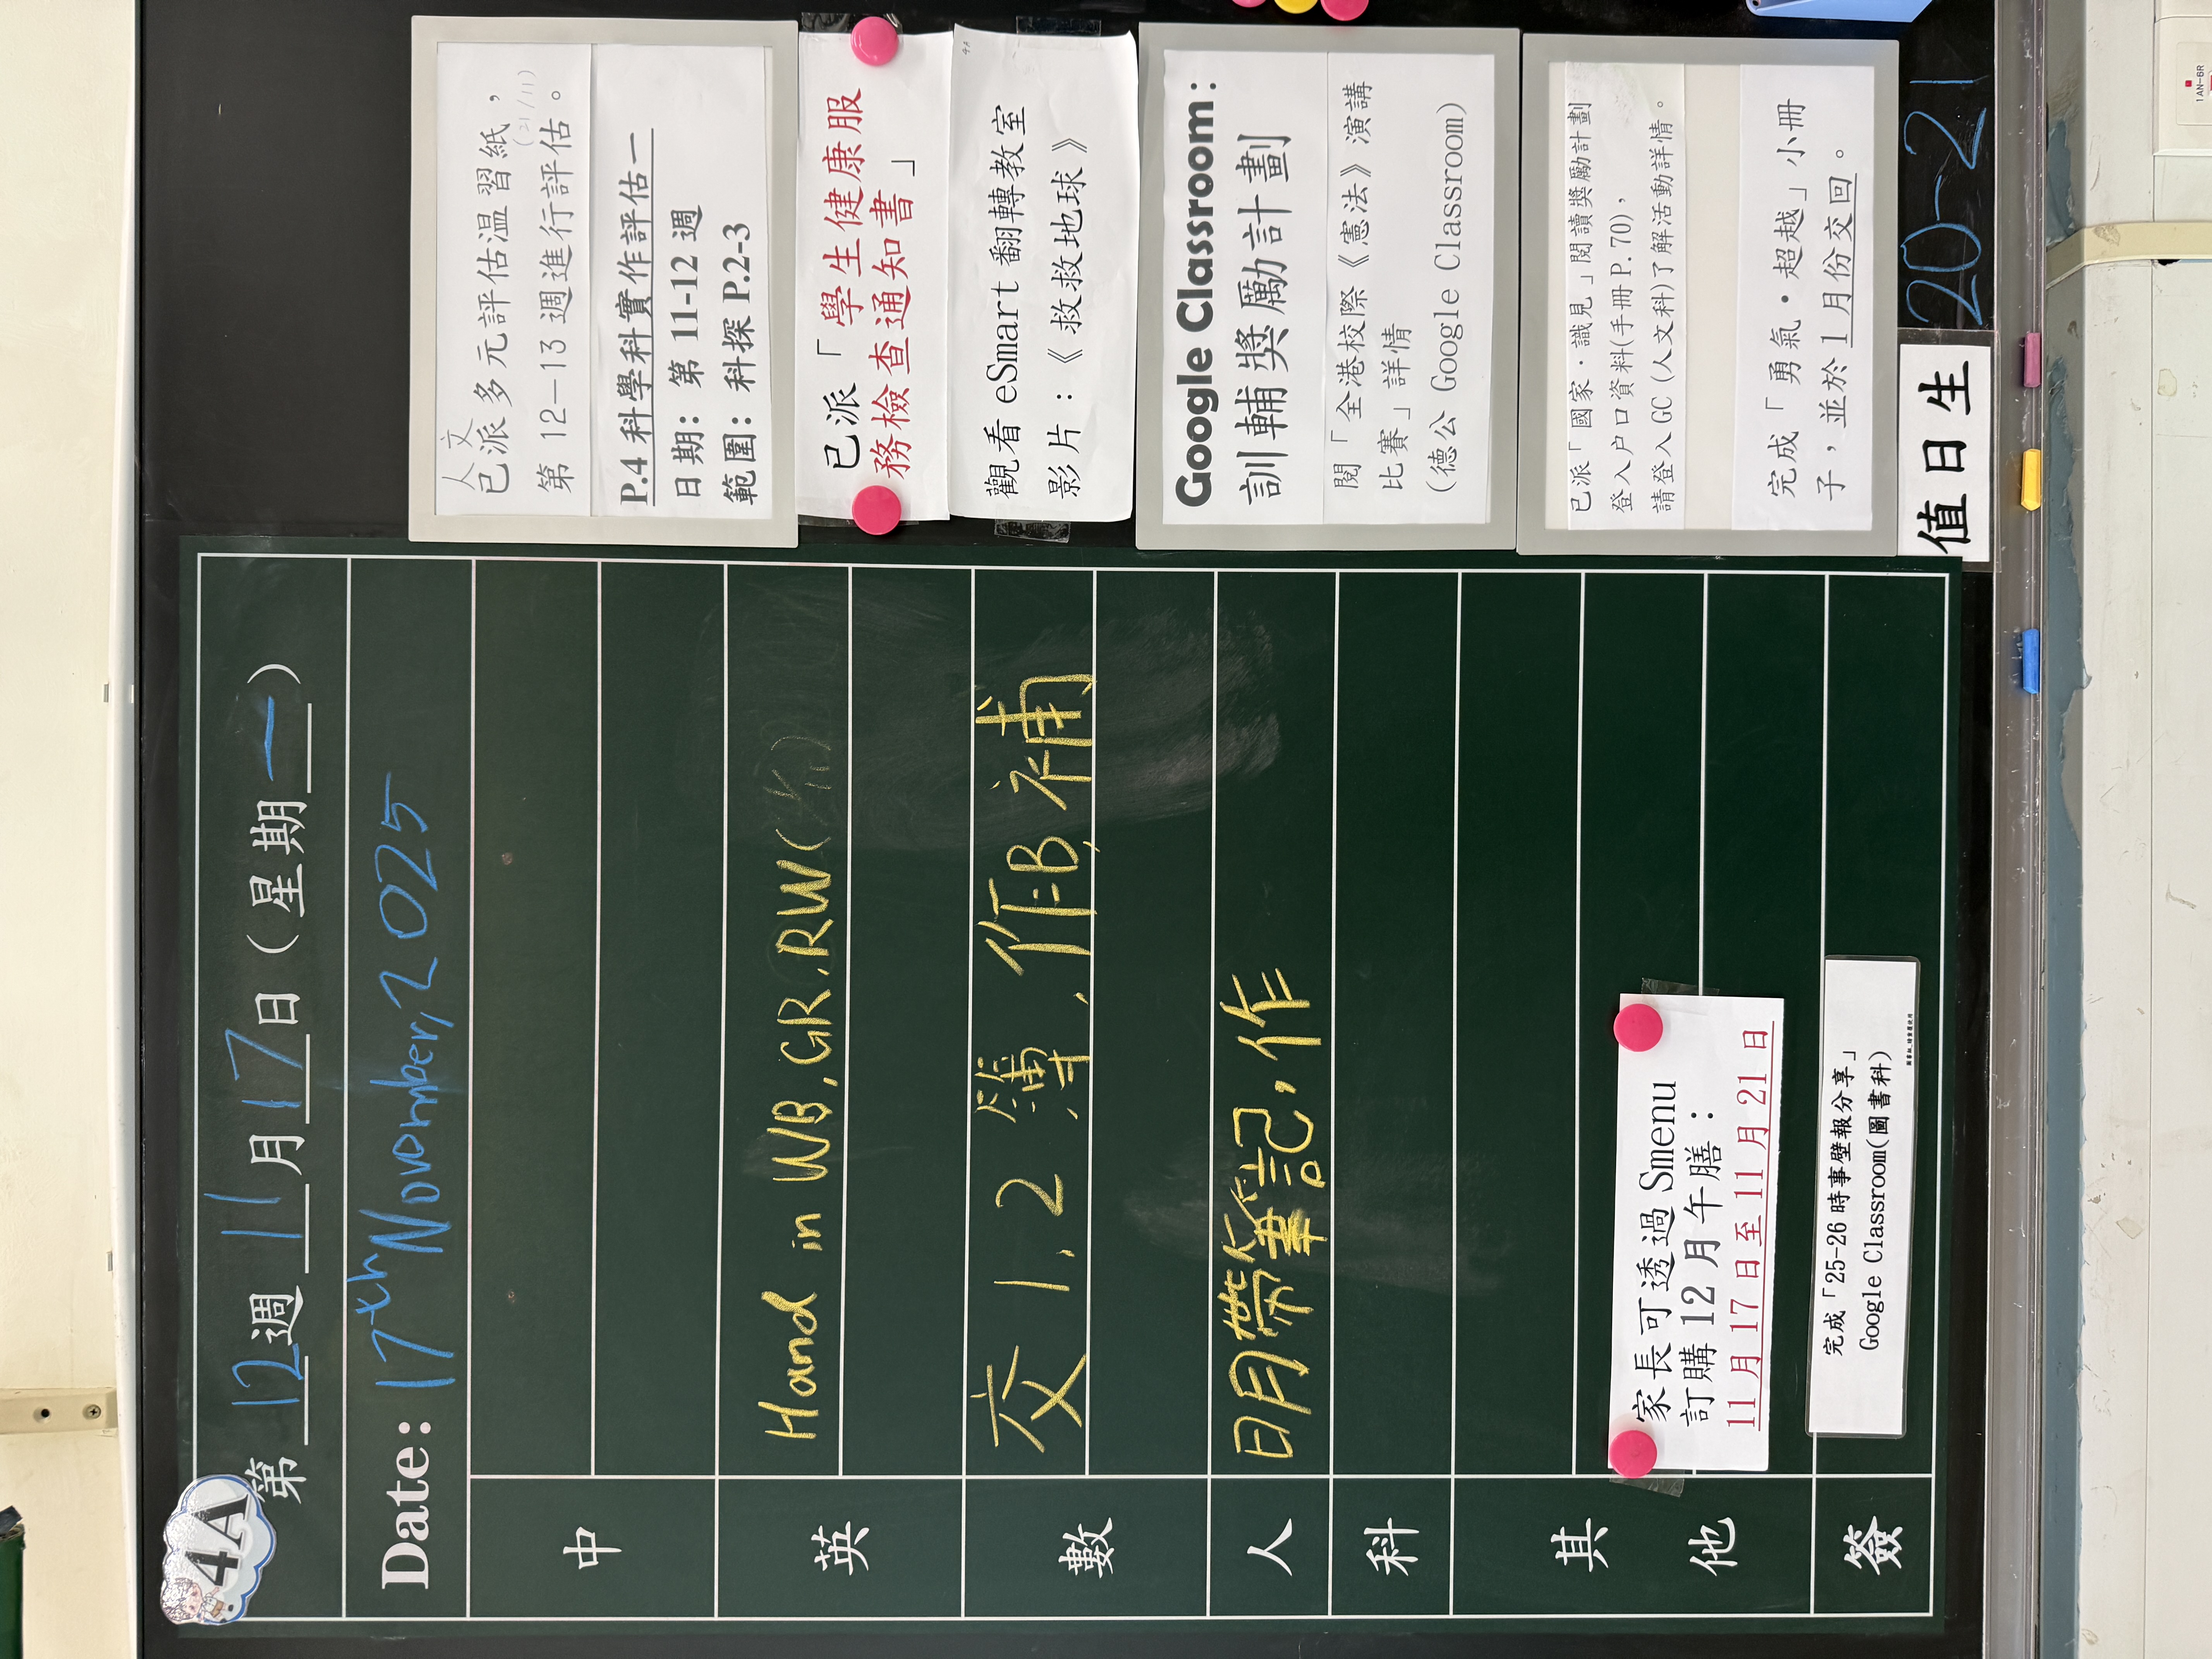 4A
第12週11月17日(星期一)
Date: 17th November, 2025
中
英
Hand in WB, GR, RW(
數
交1, 2簿, 作B, 補
人
明帶筆記, 作
科
其他
家長可透過 Smenu
訂購 12 月午膳：
11 月 17 日至 11 月 21 日
簽
完成「25-26 時事壁報分享」
Google Classroom(圖書科)
人文
已派多元評估溫習紙，
(21/11)
第 12-13 週進行評估。
P.4 科學科實作評估一
日期：第 11-12 週
範圍：科探 P.2-3
已派「學生健康服
務檢查通知書」
4A
觀看 eSmart 翻轉教室
影片：《救救地球》
Google Classroom:
訓輔獎勵計劃
閱「全港校際《憲法》演講
比賽」詳情
(德公 Google Classroom)
已派「國家・識見」閱讀獎勵計劃
登入户口資料(手冊 P.70)，
請登入 GC (人文科)了解活動詳情。
完成「勇氣・超越」小冊
子，並於 1 月份交回。
值日生
20-21
1AN-6R